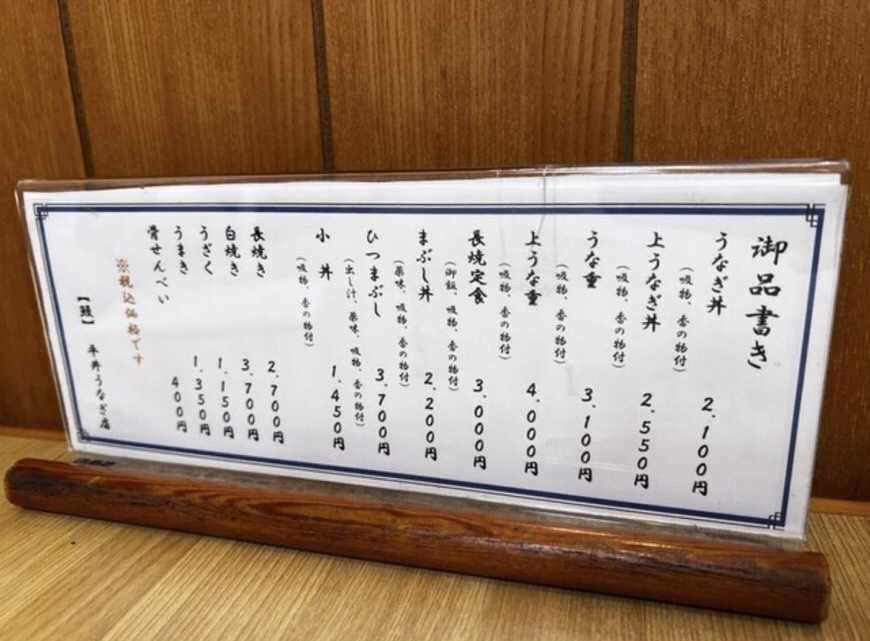 御品書き
うなぎ丼 2,100円
(吸物、香の物付)
上うなぎ丼 2,550円
(吸物、香の物付)
うな重 3,100円
(吸物、香の物付)
上うな重 4,000円
(吸物、香の物付)
長焼定食 3,000円
(御飯、吸物、香の物付)
まぶし丼 2,200円
(薬味、吸物、香の物付)
ひつまぶし 3,700円
(出し汁、薬味、吸物、香の物付)
小丼 1,450円
(吸物、香の物付)
長焼き 2,700円
白焼き 3,700円
うざく 1,150円
うまき 1,350円
骨せんべい 400円
※税込価格です
平井うなぎ店